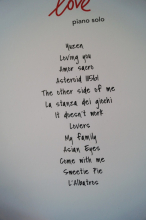 love
piano solo
Queen
Loving you
Amor sacro
Asteroid 115b1
The other side of me
La stanza dei giochi
It doesn't work
Lovers
My family
Asian Eyes
Come with me
Sweetie Pie
L'Albatros